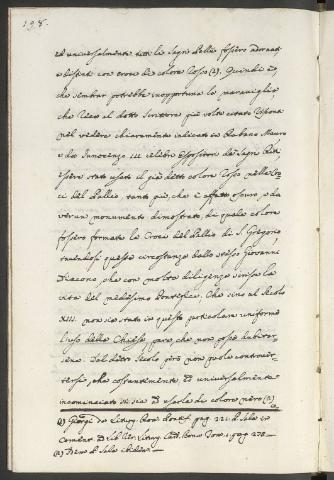 198.
ed universalmente tutti li Sagri Pallii fossero adornati
e listati con croce di colore rosso (1). Quindi è,
che sembrar potrebbe inopportuna la maraviglia
che reca al dotto Scrittore più volte citato
nel vedere chiaramente indicato in Rabano Mauro
e da Innocenzo III celebre Espositore de' Sagri Riti
essere stato usato il più detto colore rosso nelle Cro-
ci del Pallio, tanto più, che è affatto oscuro, e da
verun monumento dimostrato di quale colore
fossero formate le Croci del Pallio di S. Gregorio,
questa circostanza dallo stesso Giovanni
Diacono, che con molta diligenza scrisse la
vita del medesimo Pontefice. Che sino al Secolo
XIII. non sia stato in questo particolare uniforme
l'uso della Chiesa, pare, che non possa dubitar-
sene. Dal detto Secolo però non puole controver-
tersi, che costantemente, ed universalmente
incominciato si sia ad usarle di colore nero (2)
(1) Georgi de Liturg. Rom. Pontif. pag. 221. Sala in
Coment. ad Lib. Liturg. Card. Bona Tom. 1. pag. 278.
(2) P. Sala